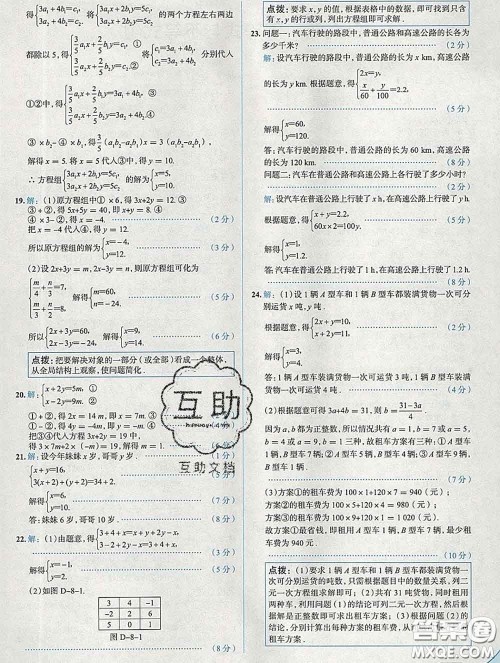 得{3a₁x+2b₁y=5c₁, 3a₂x+2b₂y=5c₂, 将 的两个方程左右两边
都除以 5, 得{3/5a₁x+2/5b₁y=c₁, 3/5a₂x+2/5b₂y=c₂, 将 分别代人
①②中, 得{3/5a₁x+2/5b₁y=3a₁+4b₁, ③ 3/5a₂x+2/5b₂y=3a₂+4b₂. ④
解得 x = 5. 将 x = 5 代人③中, 得 y = 10.
∴方程组{3a₁x+2b₁y=5c₁, 3a₂x+2b₂y=5c₂ 的解为{x=5, y=10.
19. 解:(1)原方程组中① × 6, 得 3x + 2y = 12. ③
③ + ②, 得 5x + 5y = 40, 即 x + y = 8. ④ (2 分)
④ × 3 - ②, 得 x = -4.
把 x = -4 代人④, 得 y = 12.
所以原方程组的解为{x=-4, y=12. (3 分)
(2)设 2x + 3y = m, 2x - 3y = n, 则原方程组可化为
{m/4+n/3=7, m/3+n/2=8. 解得{m=60, n=-24. (5 分)
所以{2x+3y=60, 2x-3y=-24. 解得{x=9, y=14. (6 分)
点拨:把要解决对象的一部分(或全部)看成一个整体,
从全局结构上观察, 使问题简化.
20. 解:{x+2y=5m, ① x-2y=9m. ②
① + ②, 得 2x = 14m, 即 x = 7m. ③
① - ②, 得 4y = -4m, 即 y = -m. ④
把③④代人方程 3x + 2y = 19 中,
得 3 × 7m + 2 × (-m) = 19. 解得 m = 1.
21. 解:设今年妹妹 x 岁, 哥哥 y 岁. (1 分)
根据题意, 得{x+y=16, 3(x+2)+(y+2)=34+2. (4 分)
解得{x=6, y=10. (7 分)
答:妹妹 6 岁, 哥哥 10 岁. (8 分)
22. 解:(1)由题意, 得{3+4+x=x+y+2y-x, 3-2+2y-x=3+4+x.
解得{x=-1, y=2. (5 分)
(2)如图 D-8-1
3 4 -1
-2 2 6
5 0 1
图 D-8-1
(8 分)
点拨:要求 x, y 的值, 根据表格中的数据, 即可找到只含
有 x, y 的行或列, 列出方程组即可求解.
23. 问题一:汽车行驶的路段中, 普通公路和高速公路的长各为
多少千米? (2 分)
解:设汽车行驶的路段中, 普通公路的长为 x km, 高速公路
的长为 y km. 根据题意, 得{2x=y, x/60+y/100=2.2. (5 分)
解得{x=60, y=120.
答:汽车行驶的路段中, 普通公路的长为 60 km, 高速公路
的长为 120 km. (8 分)
问题二:汽车在普通公路和高速公路上各行驶了多少小时?
(2 分)
解:设汽车在普通公路上行驶了 x h, 在高速公路上行驶了
y h. 根据题意, 得{x+y=2.2, 60x×2=100y. (5 分)
解得{x=1, y=1.2.
答:汽车在普通公路上行驶了 1 h, 在高速公路上行驶了 1.2 h.
(8 分)
24. 解:(1)设 1 辆 A 型车和 1 辆 B 型车都装满货物一次可分
别运货 x 吨, y 吨.
根据题意, 得{2x+y=10, x+2y=11. 解得{x=3, y=4.
答:1 辆 A 型车装满货物一次可运货 3 吨, 1 辆 B 型车装满
货物一次可运货 4 吨. (4 分)
(2)根据题意可得 3a + 4b = 31, 则 b = (31-3a)/4.
因为 a, b 都为正整数, 所以共有 a = 1, b = 7 或 a = 5,
b = 4 或 a = 9, b = 1 三种, 故租车方案有三种:①A 型车
1 辆, B 型车 7 辆;②A 型车 5 辆, B 型车 4 辆;③A 型车 9
辆, B 型车 1 辆. (7 分)
(3)方案①的租车费为 100 × 1 + 120 × 7 = 940 (元);
方案②的租车费为 100 × 5 + 120 × 4 = 980 (元);
方案③的租车费为 100 × 9 + 120 × 1 = 1 020 (元).
故方案①最省钱, 即租用 A 型车 1 辆, B 型车 7 辆, 最少租
车费为 940 元. (10 分)
点拨:(1)要求 1 辆 A 型车和 1 辆 B 型车都装满货物一
次可分别运货的吨数, 只需根据题目中的数量关系, 列二
元一次方程组解决即可;(2)共有货物 31 吨, 同时租用
两种车, 利用问题(1)的结论可列二元一次方程, 由车辆
数是正整数可求出租车方案;(3)根据问题(2)的
结论, 分别计算出每种方案的租车费, 从中找出最省钱的
租车方案.
互助
互助文档
答案圈
MXQE.COM